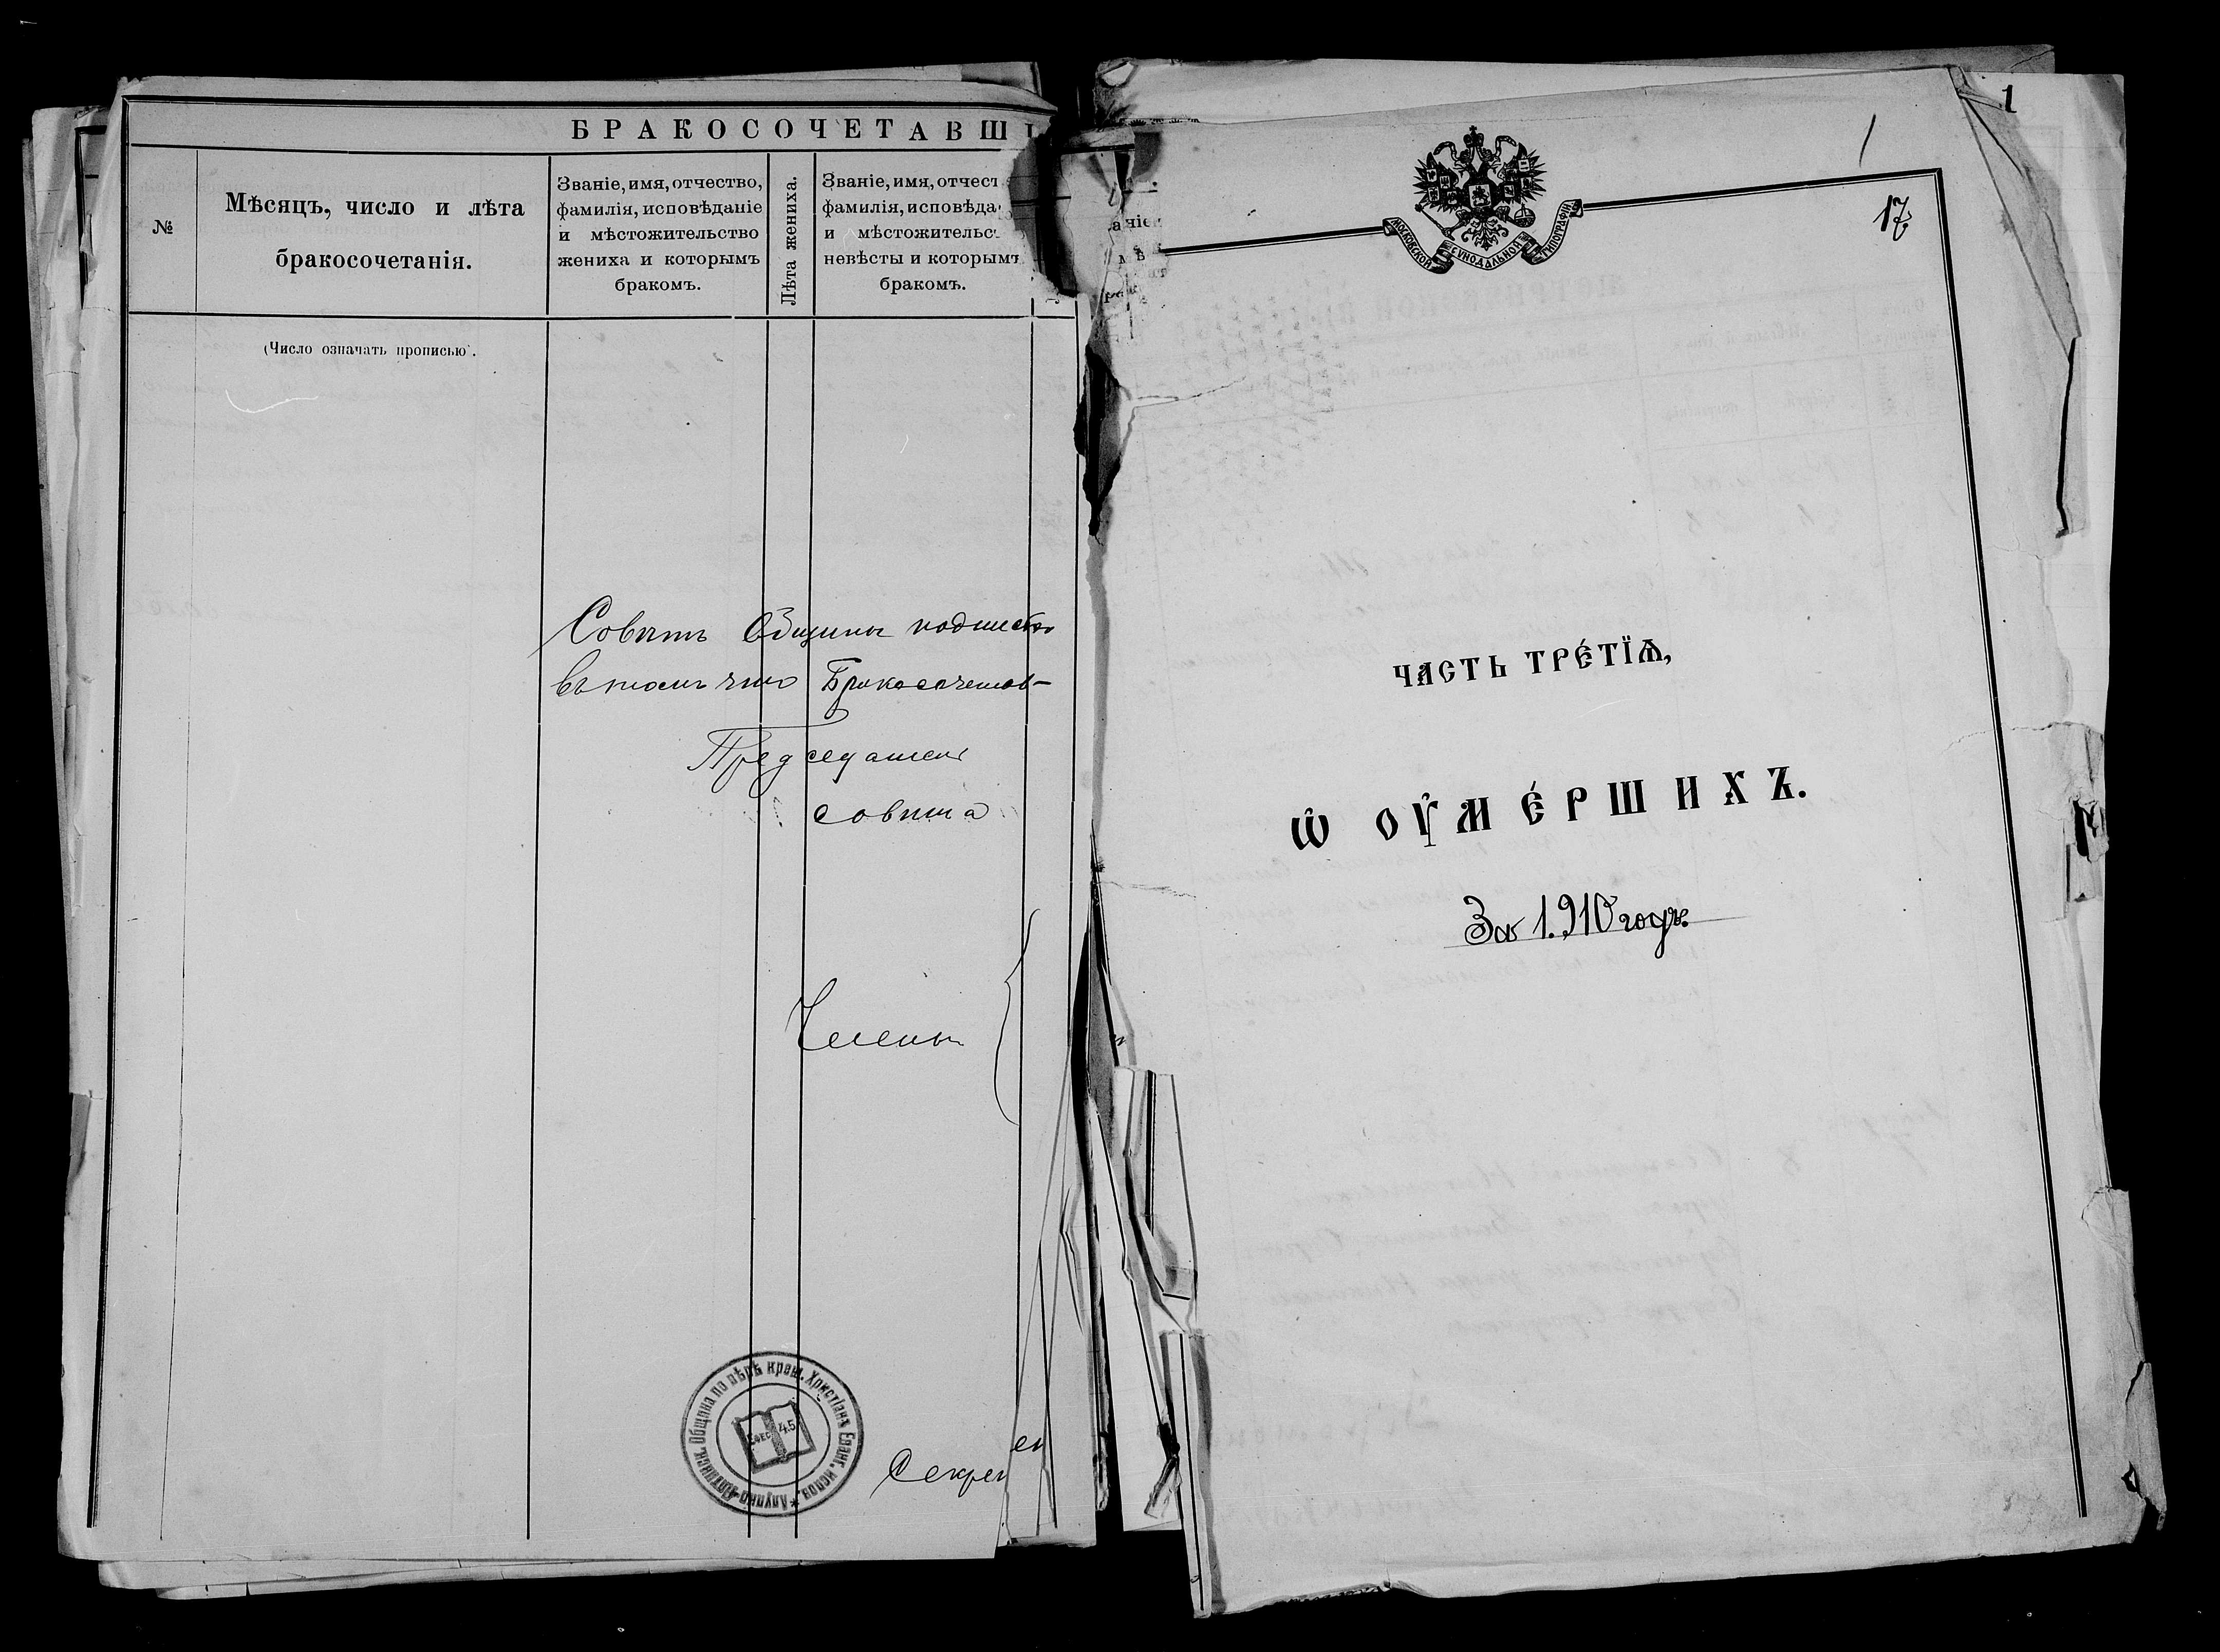 БРАКОСОЧЕТАВШ
№
Мѣсяцъ, число и лѣта
бракосочетанія.
Званіе, имя, отчество,
фамилія, исповѣданіе
и мѣстожительство
жениха и которымъ
бракомъ.
Лѣта жениха.
Званіе, имя, отчест
фамилія, исповѣда
и мѣстожительс
невѣсты и которымъ
бракомъ.
(Число означать прописью).
Совѣтъ Общины
въ томъ что Бракосочетав-
Председатель
совѣта
Члены
Секрет
Алупко-Ялтинск. Община по вѣрѣ крещ. Христіанъ Еванг. испов.
Ефес. 4.5
1
17
МОСКОВСКОЙ СѴНОДАЛЬНОЙ ТИПОГРАФІИ
ЧАСТЬ ТРЕ́ТЇѦ,
Ѡ҆ ОУ҆МЕ́РШИХЪ.
За 1.910 годъ.